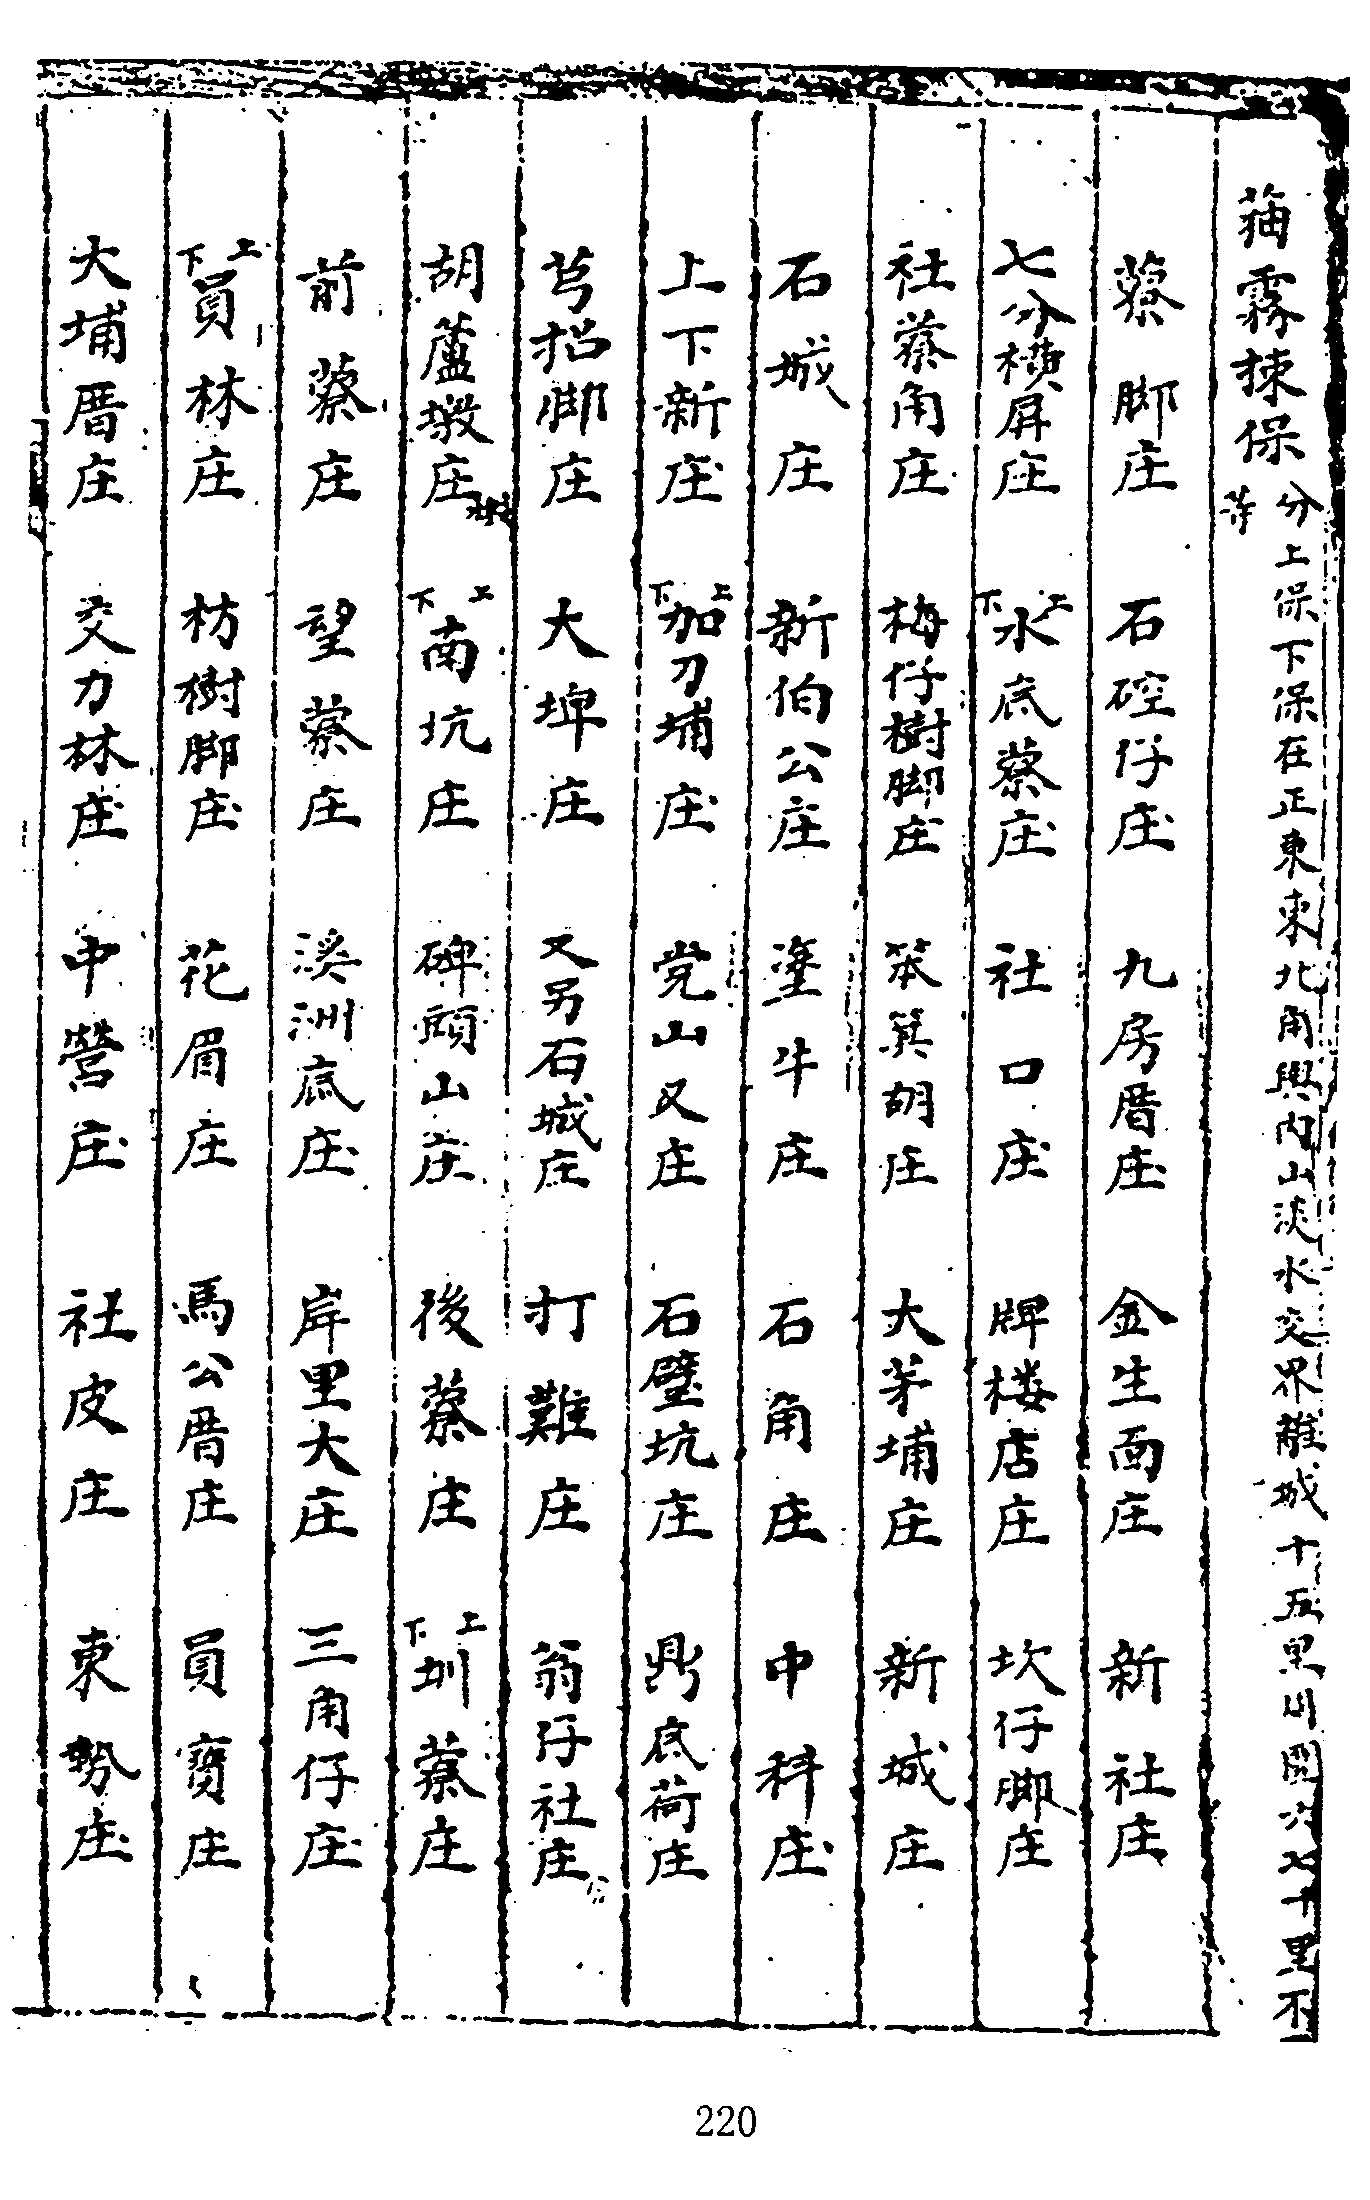 貓霧捒保 分上保下保在正東東北角與內山淡水交界離城十五里週圍六七十里不等
藔脚庄 石硿仔庄 九房厝庄 金生面庄 新社庄
七分橫屏庄 上下水底藔庄 社口庄 牌楼店庄 坎仔脚庄
社藔角庄 梅仔樹脚庄 笨箕胡庄 大茅埔庄 新城庄
石城庄 新伯公庄 塗牛庄 石角庄 中科庄
上下新庄 上下加刀埔庄 党山又庄 石壁坑庄 鼎底荷庄
芎招脚庄 大埤庄 又另石城庄 打難庄 翁仔社庄
胡蘆墩庄 上下南坑庄 碑頭山庄 後藔庄 上下圳藔庄
前藔庄 望藔庄 溪洲底庄 岸里大庄 三角仔庄
上下員林庄 枋樹脚庄 花眉庄 馬公厝庄 員寶庄
大埔厝庄 交力林庄 中營庄 社皮庄 東勢庄
220